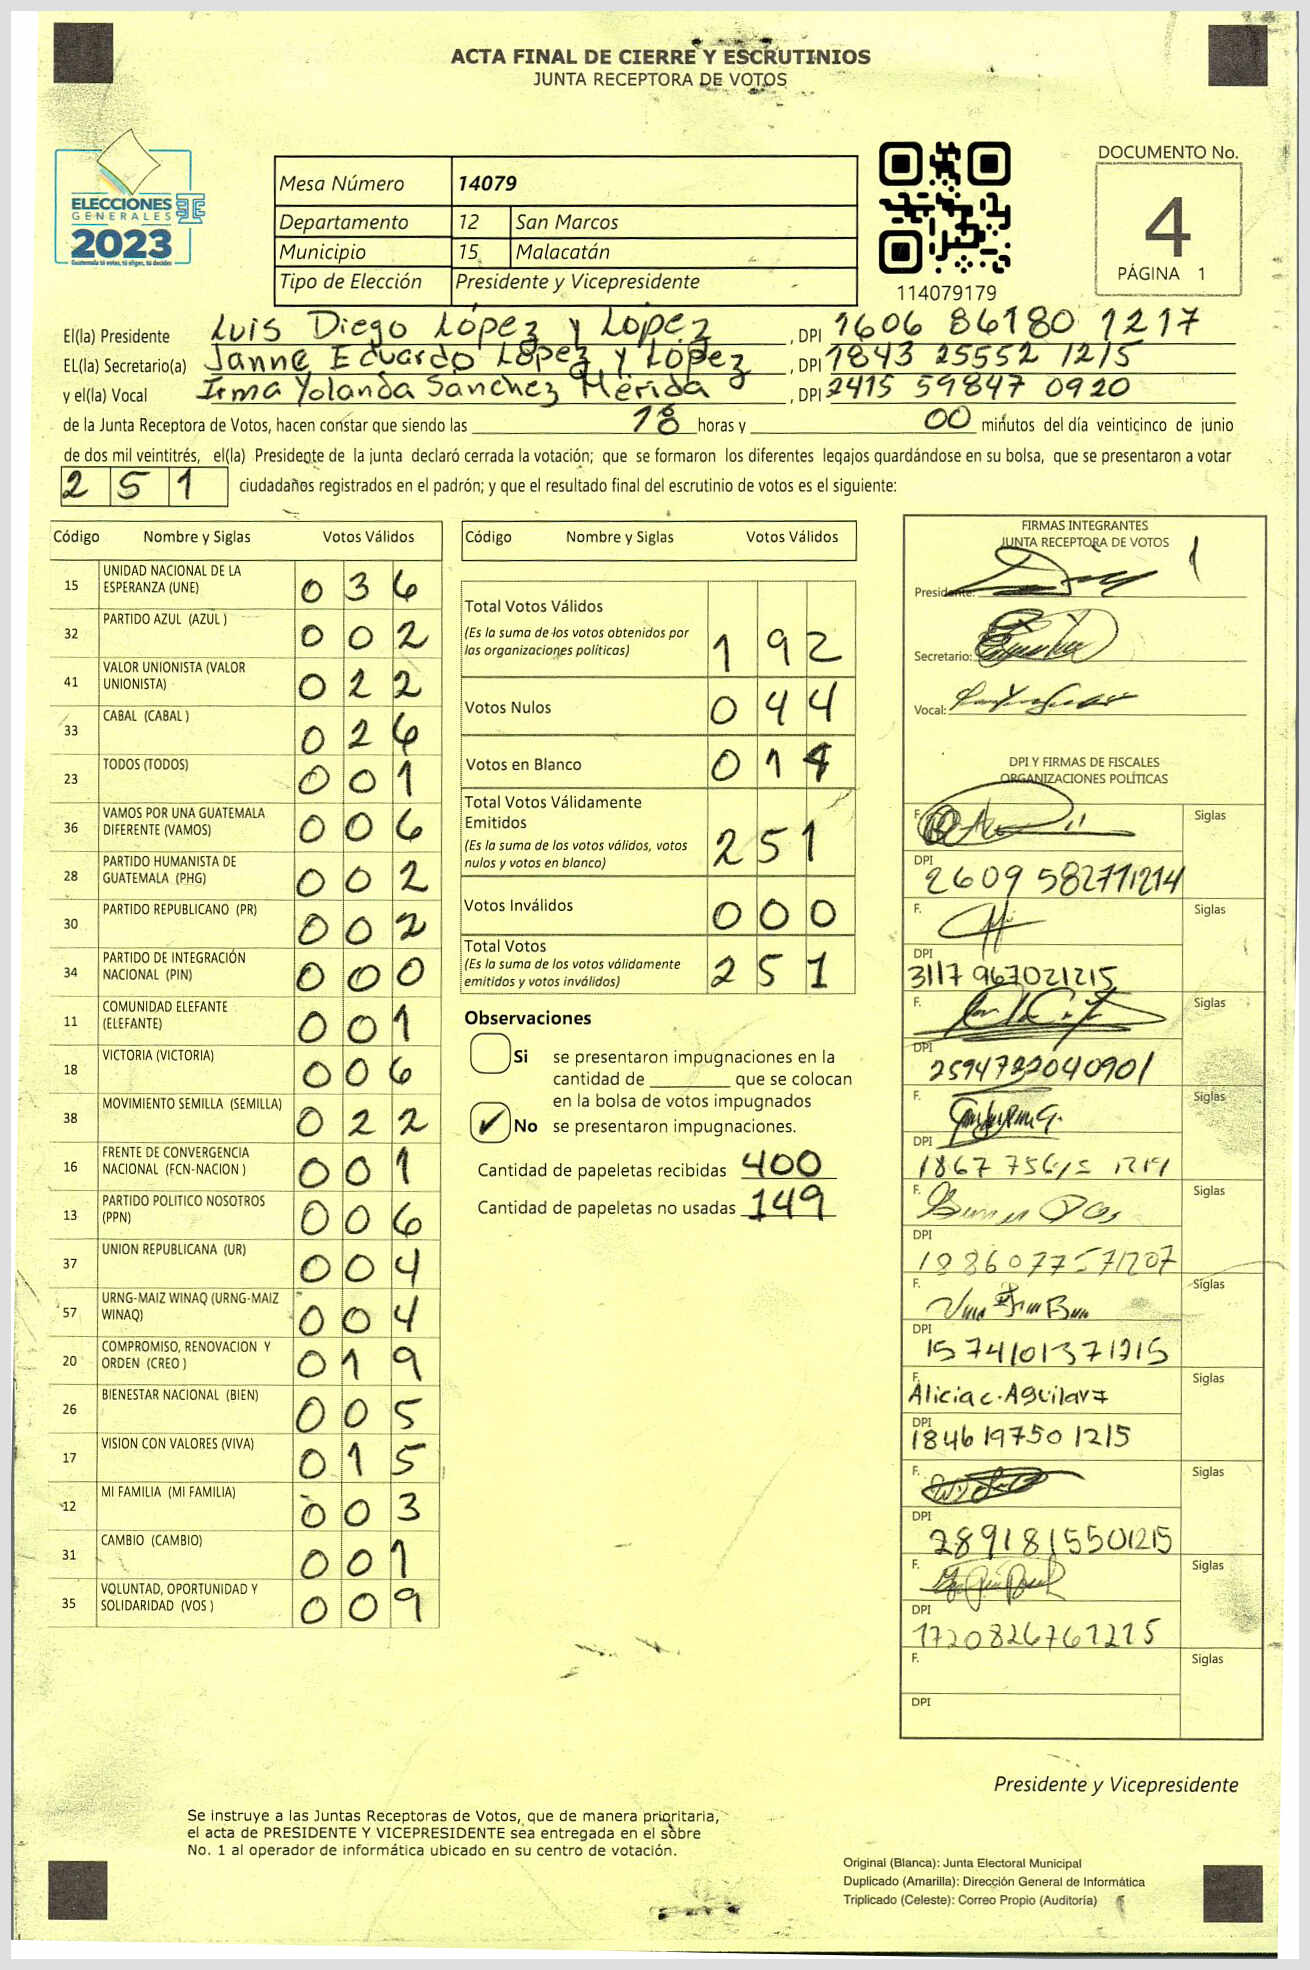 ACTA FINAL DE CIERRE Y ESCRUTINIOS
JUNTA RECEPTORA DE VOTOS
ELECCIONES
GENERALES
2023
Guatemala tú votas, tú eliges, tú decides
Mesa Número 14079
Departamento 12 San Marcos
Municipio 15 Malacatán
Tipo de Elección Presidente y Vicepresidente
114079179
DOCUMENTO No.
4
PÁGINA 1
El(la) Presidente Luis Diego López y Lopez, DPI 1606 86180 1217
EL(la) Secretario(a) Janne Eduardo López y López, DPI 1843 25552 1215
y el(la) Vocal Irma Yolanda Sanchez Mérida, DPI 2415 59847 0920
de la Junta Receptora de Votos, hacen constar que siendo las 18 horas y 00 minutos del día veinticinco de junio
de dos mil veintitrés, el(la) Presidente de la junta declaró cerrada la votación; que se formaron los diferentes legajos guardándose en su bolsa, que se presentaron a votar
2 5 1 ciudadanos registrados en el padrón; y que el resultado final del escrutinio de votos es el siguiente:
Código Nombre y Siglas Votos Válidos
15 UNIDAD NACIONAL DE LA ESPERANZA (UNE) 0 3 6
32 PARTIDO AZUL (AZUL ) 0 0 2
41 VALOR UNIONISTA (VALOR UNIONISTA) 0 2 2
33 CABAL (CABAL ) 0 2 6
23 TODOS (TODOS) 0 0 1
36 VAMOS POR UNA GUATEMALA DIFERENTE (VAMOS) 0 0 6
28 PARTIDO HUMANISTA DE GUATEMALA (PHG) 0 0 2
30 PARTIDO REPUBLICANO (PR) 0 0 2
34 PARTIDO DE INTEGRACIÓN NACIONAL (PIN) 0 0 0
11 COMUNIDAD ELEFANTE (ELEFANTE) 0 0 1
18 VICTORIA (VICTORIA) 0 0 6
38 MOVIMIENTO SEMILLA (SEMILLA) 0 2 2
16 FRENTE DE CONVERGENCIA NACIONAL (FCN-NACION ) 0 0 1
13 PARTIDO POLITICO NOSOTROS (PPN) 0 0 6
37 UNION REPUBLICANA (UR) 0 0 4
57 URNG-MAIZ WINAQ (URNG-MAIZ WINAQ) 0 0 4
20 COMPROMISO, RENOVACION Y ORDEN (CREO ) 0 1 9
26 BIENESTAR NACIONAL (BIEN) 0 0 5
17 VISION CON VALORES (VIVA) 0 1 5
12 MI FAMILIA (MI FAMILIA) 0 0 3
31 CAMBIO (CAMBIO) 0 0 1
35 VOLUNTAD, OPORTUNIDAD Y SOLIDARIDAD (VOS ) 0 0 9
Código Nombre y Siglas Votos Válidos
Total Votos Válidos
(Es la suma de los votos obtenidos por
las organizaciones políticas) 1 9 2
Votos Nulos 0 4 4
Votos en Blanco 0 1
Total Votos Válidamente
Emitidos
(Es la suma de los votos válidos, votos
nulos y votos en blanco) 2 5 1
Votos Inválidos 0 0 0
Total Votos
(Es la suma de los votos válidamente
emitidos y votos inválidos) 2 5 1
Observaciones
Si se presentaron impugnaciones en la
cantidad de ________ que se colocan
en la bolsa de votos impugnados
✓ No se presentaron impugnaciones.
Cantidad de papeletas recibidas 400
Cantidad de papeletas no usadas 149
FIRMAS INTEGRANTES
JUNTA RECEPTORA DE VOTOS
Presidente:
Secretario:
Vocal:
DPI Y FIRMAS DE FISCALES
ORGANIZACIONES POLÍTICAS
F. Siglas
DPI
2609 582771214
F. Siglas
DPI
3117 967021215
F. Siglas
DPI
2594732040901
F. Siglas
DPI
F. Siglas
DPI
F. Siglas
DPI
1574101371215
F. Siglas
Alicia c. Aguilar
DPI
1846197501215
F. Siglas
DPI
2891815501215
F. Siglas
DPI
1720826761215
F. Siglas
DPI
Presidente y Vicepresidente
Se instruye a las Juntas Receptoras de Votos, que de manera prioritaria,
el acta de PRESIDENTE Y VICEPRESIDENTE sea entregada en el sobre
No. 1 al operador de informática ubicado en su centro de votación.
Original (Blanca): Junta Electoral Municipal
Duplicado (Amarilla): Dirección General de Informática
Triplicado (Celeste): Correo Propio (Auditoría)